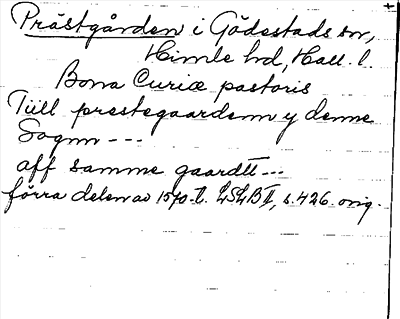 Prästgården i Gödestads sn,
Himle hd, Hall. l.
Bona Curiæ pastoris
Tiill prestegaardenn y denne
Sognn ---
aff samme gaardtt---
förra delen av 1570-t. LSLB II, s. 426. orig.